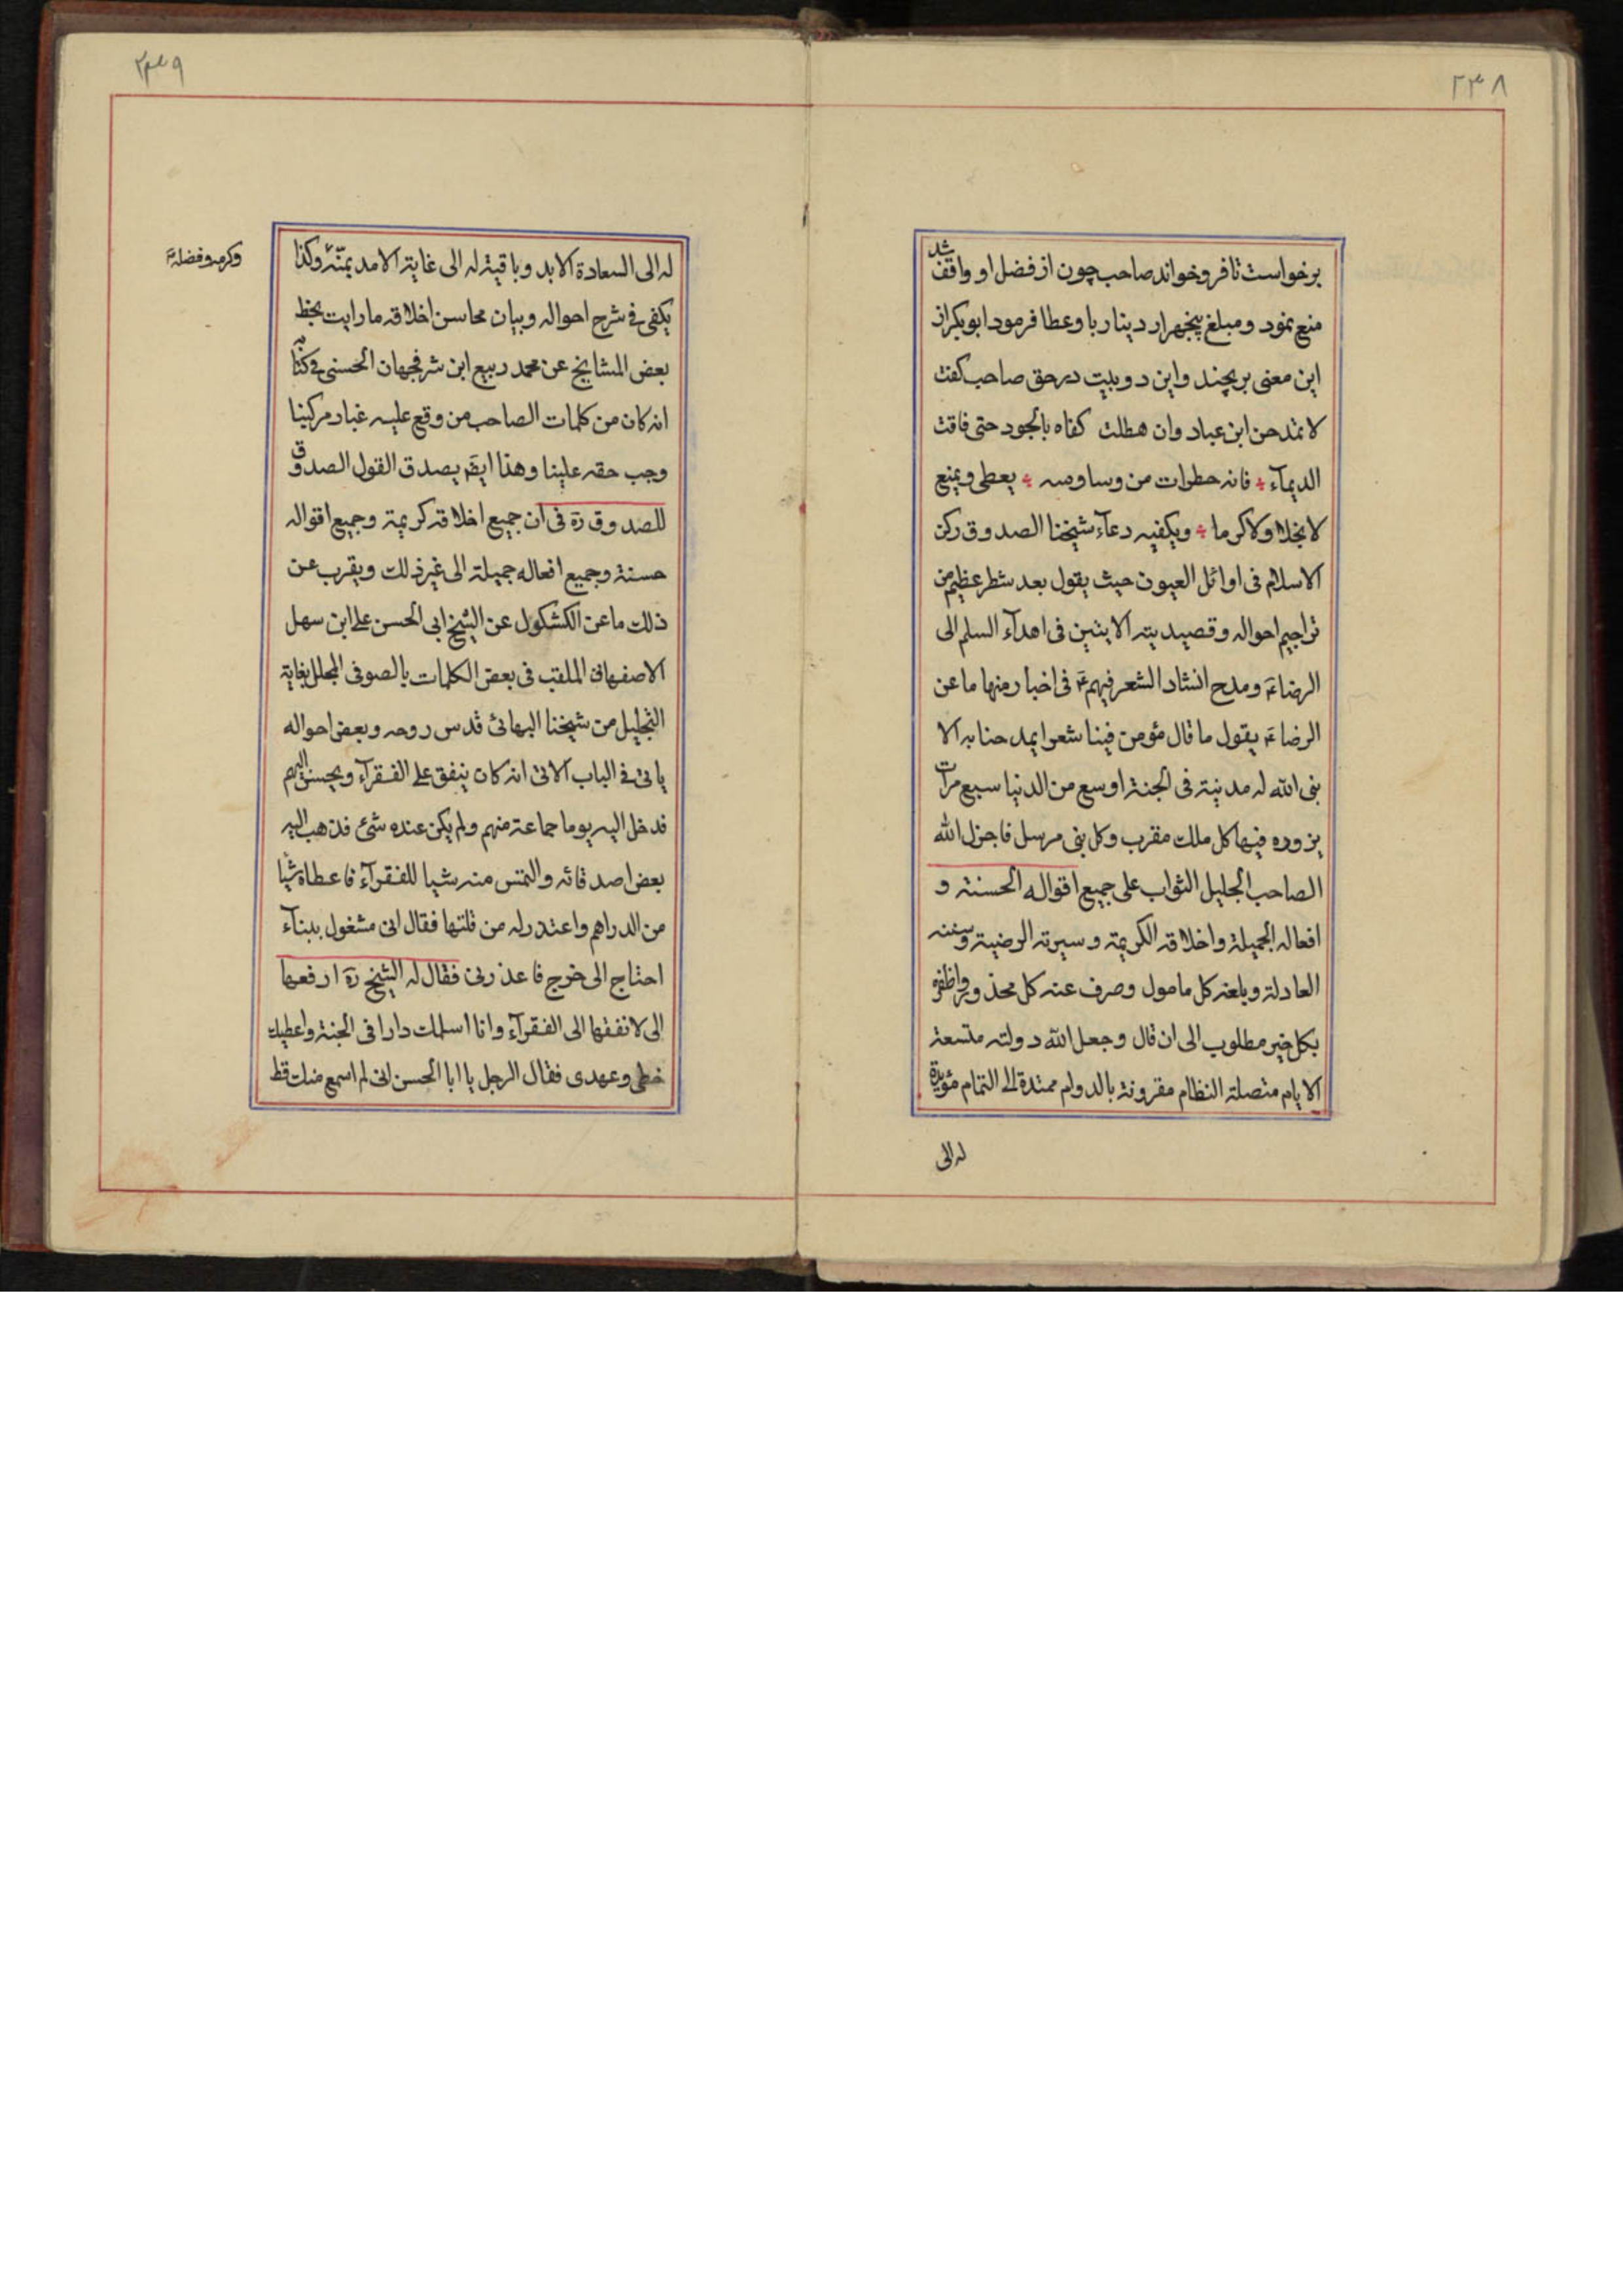 ۲۳۸
برخواست تا فرو خواند صاحب چون از فضل او واقف شد
منع نمود و مبلغ پنجهزار دینار باو عطا فرمود ابوبکر از
این معنی برنجید و این دو بیت در حق صاحب کفت
لا تمدحن ابن عباد وان هطلت کفاه بالجود حتی فاقت
الدیمآء فانه خطرات من وساوسه یعطی ویمنع
لا بخلا ولا کرما ویکفیه دعآء شیخنا الصدوق رکن
الاسلام فی اوائل العیون حیث یقول بعد شطر عظیم من
تراجیم احواله وقصیدیته الاتیتین فی اهدآء السلم الی
الرضاء ومدح انشاد الشعر فیهم فی اخبار منها ما عن
الرضاء یقول ما قال مؤمن فینا شعرا یمدحنا به الا
بنی الله له مدینة فی الجنة اوسع من الدنیا سبع مرات
یزوره فیها کل ملک مقرب وکل نبی مرسل فاجزل الله
الصاحب الجلیل الثواب علی جمیع اقواله الحسنة و
افعاله الجمیلة واخلاقه الکریمة وسیرته الرضیة وسننه
العادلة وبلغه کل مامول وصرف عنه کل محذور واظفره
بکل خیر مطلوب الی ان قال وجعل الله دولته متسعة
الایام متصلة النظام مقرونة بالدوام ممتدة الی التمام مؤیدة
له الی
۲۳۹
له الی السعادة الابد وباقیة له الی غایة الامد بمنّه وکذا
وکرمه وفضله
یکفی فی شرح احواله وبیان محاسن اخلاقه ما رایت بخط
بعض المشایخ عن محمد ربیع ابن شرفجهان الحسنی فی کتابه
انه کان من کلمات الصاحب من وقع علیه غبار مرکبنا
وجب حقه علینا وهذا ایضا یصدق القول الصدوق
للصدوق ره فی ان جمیع اخلاقه کریمة وجمیع اقواله
حسنة وجمیع افعاله جمیلة الی غیر ذلک ویقرب عن
ذلک ما عن الکشکول عن الشیخ ابی الحسن علی ابن سهل
الاصفهانی الملقب فی بعض الکلمات بالصوفی المجلل بغایة
التجلیل من شیخنا البهائی قدس روحه وبعض احواله
یاتی فی الباب الاتی انه کان ینفق علی الفقرآء ویحسن الیهم
فدخل الیه یوما جماعة منهم ولم یکن عنده شئ فذهب الیه
بعض اصدقائه والتمس منه شیا للفقرآء فاعطاه شیا
من الدراهم واعتذر له من قلتها فقال انی مشغول ببنآء
احتاج الی خرج فاعذرنی فقال له الشیخ ره ارفعها
الی لانفقها الی الفقرآء وانا اسلمک دارا فی الجنة واعطیک
خطی وعهدی فقال الرجل یا ابا الحسن انی لم اسمع منک قط